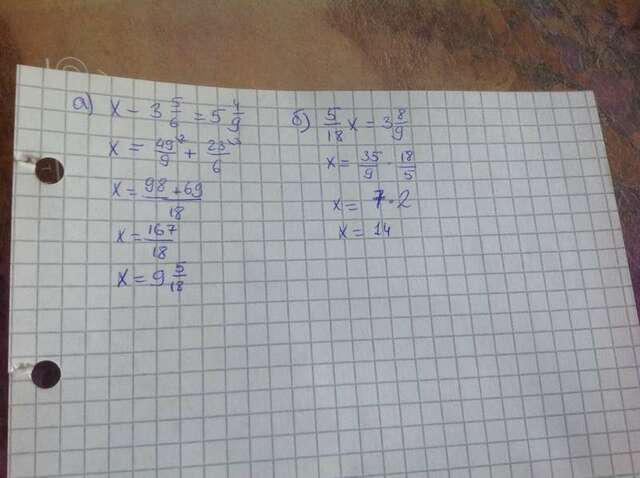 а) x - 3 5/6 = 5 4/9
x = 49²/9 + 23³/6
x = 98 + 69/18
x = 167/18
x = 9 5/18
б) 5/18 x = 3 8/9
x = 35/9 · 18/5
x = 7 · 2
x = 14